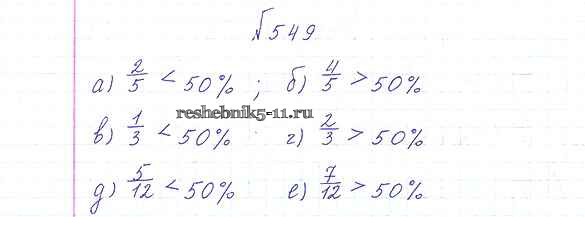 №549
а) 2/5 < 50% ; б) 4/5 > 50%
reshebnik5-11.ru
в) 1/3 < 50% г) 2/3 > 50%
д) 5/12 < 50% е) 7/12 > 50%